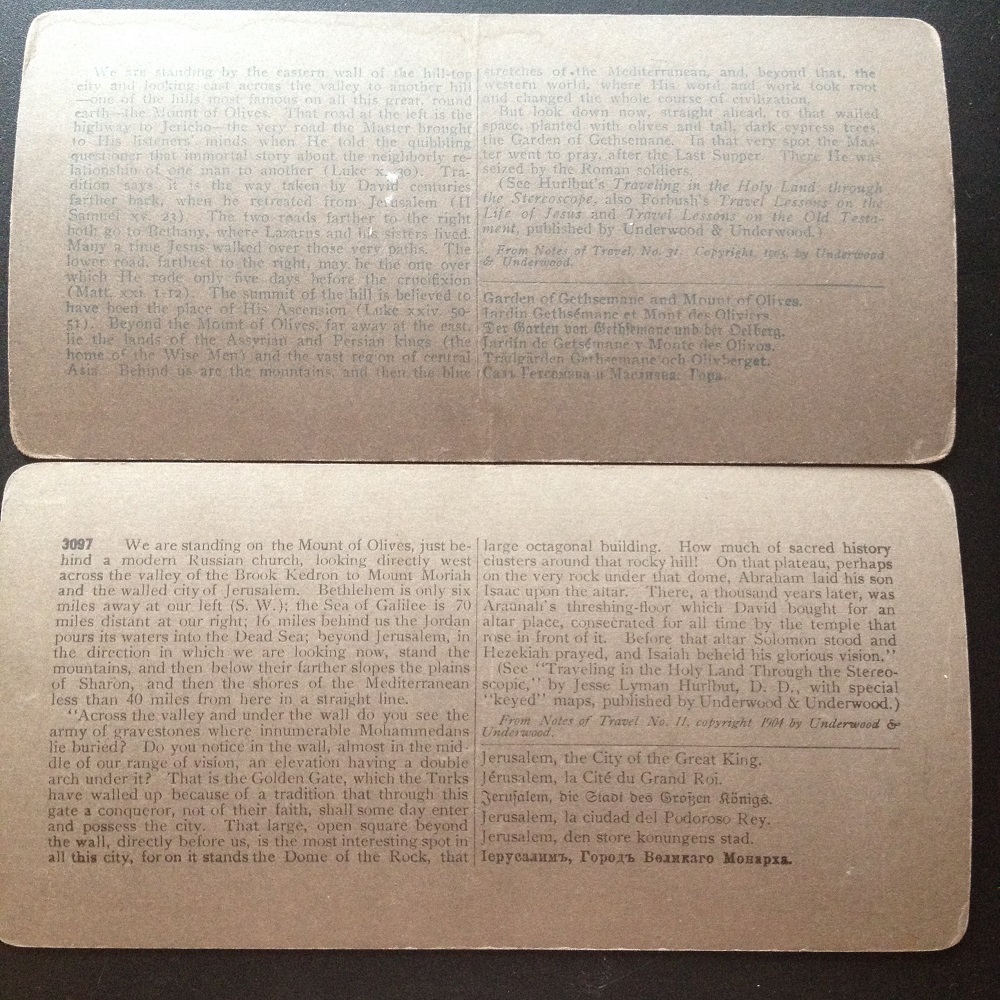 We are standing by the eastern wall of the hill-top
city and looking east across the valley to another hill
—one of the hills most famous on all this great, round
earth—the Mount of Olives. That road at the left is the
highway to Jericho—the very road the Master brought
to His listeners' minds when He told the quibbling
questioner that immortal story about the neighborly re-
lationship of one man to another (Luke x. 30). Tra-
dition says it is the way taken by David centuries
farther back, when he retreated from Jerusalem (II
Samuel xv. 23). The two roads farther to the right
both go to Bethany, where Lazarus and his sisters lived.
Many a time Jesus walked over those very paths. The
lower road, farthest to the right, may be the one over
which He rode only five days before the crucifixion
(Matt. xxi. 1-12). The summit of the hill is believed to
have been the place of His Ascension (Luke xxiv. 50-
51). Beyond the Mount of Olives, far away at the east,
lie the lands of the Assyrian and Persian kings (the
home of the Wise Men) and the vast region of central
Asia. Behind us are the mountains, and then the blue
stretches of the Mediterranean, and, beyond that, the
western world, where His word and work took root
and changed the whole course of civilization.
But look down now, straight ahead, to that walled
space, planted with olives and tall, dark cypress trees,
the Garden of Gethsemane. In that very spot the Mas-
ter went to pray, after the Last Supper. There He was
seized by the Roman soldiers.
(See Hurlbut's Traveling in the Holy Land through
the Stereoscope, also Forbush's Travel Lessons on the
Life of Jesus and Travel Lessons on the Old Testa-
ment, published by Underwood & Underwood.)
From Notes of Travel, No. 31. Copyright, 1905, by Underwood
& Underwood.
Garden of Gethsemane and Mount of Olives.
Jardin Gethsémane et Mont des Oliviers.
Der Garten von Gethsemane und der Oelberg.
Jardín de Getsémane y Monte des Olivos.
Trädgården Gethsemane och Olivberget.
Садъ Гетсемана и Масличная Гора.
3097 We are standing on the Mount of Olives, just be-
hind a modern Russian church, looking directly west
across the valley of the Brook Kedron to Mount Moriah
and the walled city of Jerusalem. Bethlehem is only six
miles away at our left (S. W.); the Sea of Galilee is 70
miles distant at our right; 16 miles behind us the Jordan
pours its waters into the Dead Sea; beyond Jerusalem, in
the direction in which we are looking now, stand the
mountains, and then below their farther slopes the plains
of Sharon, and then the shores of the Mediterranean
less than 40 miles from here in a straight line.
"Across the valley and under the wall do you see the
army of gravestones where innumerable Mohammedans
lie buried? Do you notice in the wall, almost in the mid-
dle of our range of vision, an elevation having a double
arch under it? That is the Golden Gate, which the Turks
have walled up because of a tradition that through this
gate a conqueror, not of their faith, shall some day enter
and possess the city. That large, open square beyond
the wall, directly before us, is the most interesting spot in
all this city, for on it stands the Dome of the Rock, that
large octagonal building. How much of sacred history
clusters around that rocky hill! On that plateau, perhaps
on the very rock under that dome, Abraham laid his son
Isaac upon the altar. There, a thousand years later, was
Araunah's threshing-floor which David bought for an
altar place, consecrated for all time by the temple that
rose in front of it. Before that altar Solomon stood and
Hezekiah prayed, and Isaiah beheld his glorious vision."
(See "Traveling in the Holy Land Through the Stereo-
scopic," by Jesse Lyman Hurlbut, D. D., with special
"keyed" maps, published by Underwood & Underwood.)
From Notes of Travel No. 11, copyright 1904 by Underwood &
Underwood.
Jerusalem, the City of the Great King.
Jérusalem, la Cité du Grand Roi.
Jerusalem, die Stadt des Großen Königs.
Jerusalem, la ciudad del Podoroso Rey.
Jerusalem, den store konungens stad.
Іерусалимъ, Городъ Великаго Монарха.